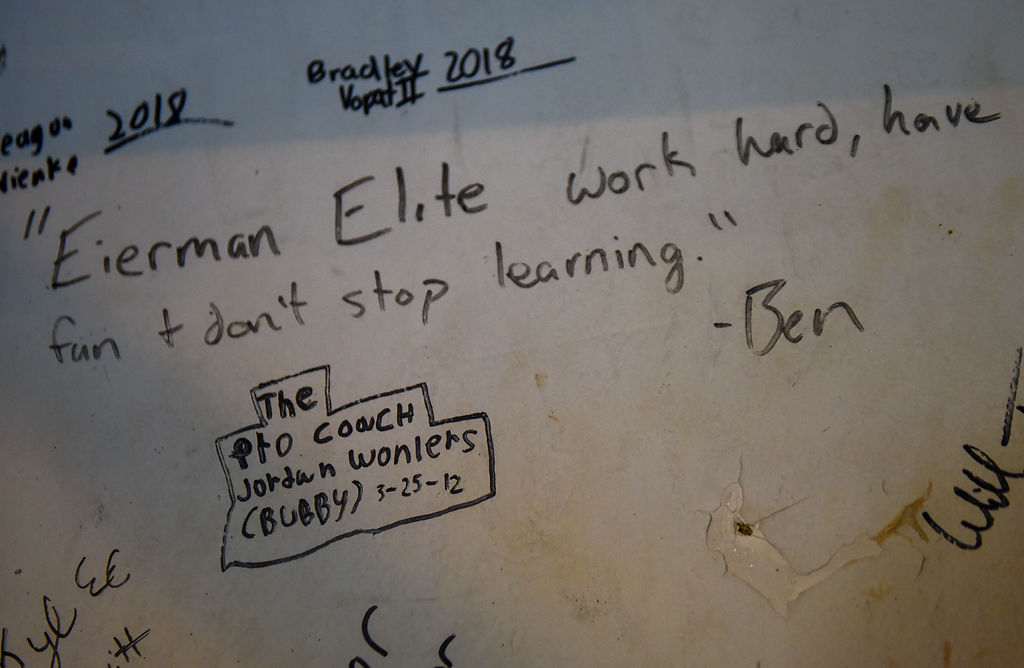 Bradley 2018
Vopat II
2018
"Eierman Elite work hard, have
fun + don't stop learning."
-Ben
The
Pro COACH
Jordan Wonlers
(BUBBY) 3-25-12
Will
EE